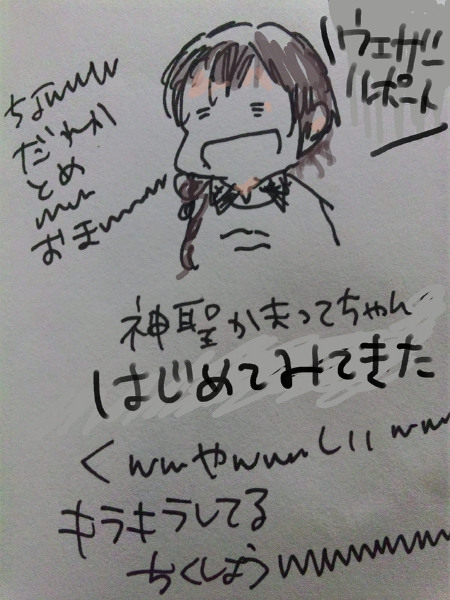 ウェザー
リポート
ちょwwww
だれか
とめ
www
おまwwww
神聖かまってちゃん
はじめてみてきた
くwwwやwwwwしいwww
キラキラしてる
ちくしょうwwwwwwwww